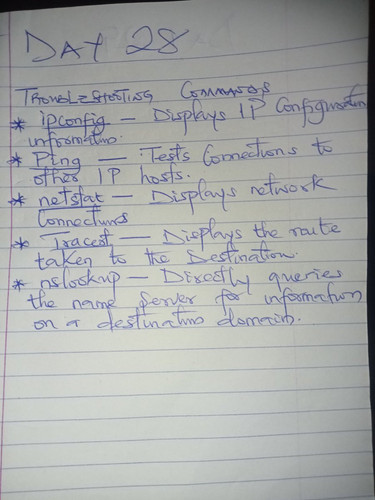 DAY 28
TROUBLESHOOTING COMMANDS
* ipconfig — Displays IP Configuration
information.
* Ping — Tests Connections to
other IP hosts.
* netstat — Displays network
Connections
* Tracert — Displays the route
taken to the Destination.
* nslookup — Directly queries
the name server for information
on a destination domain.